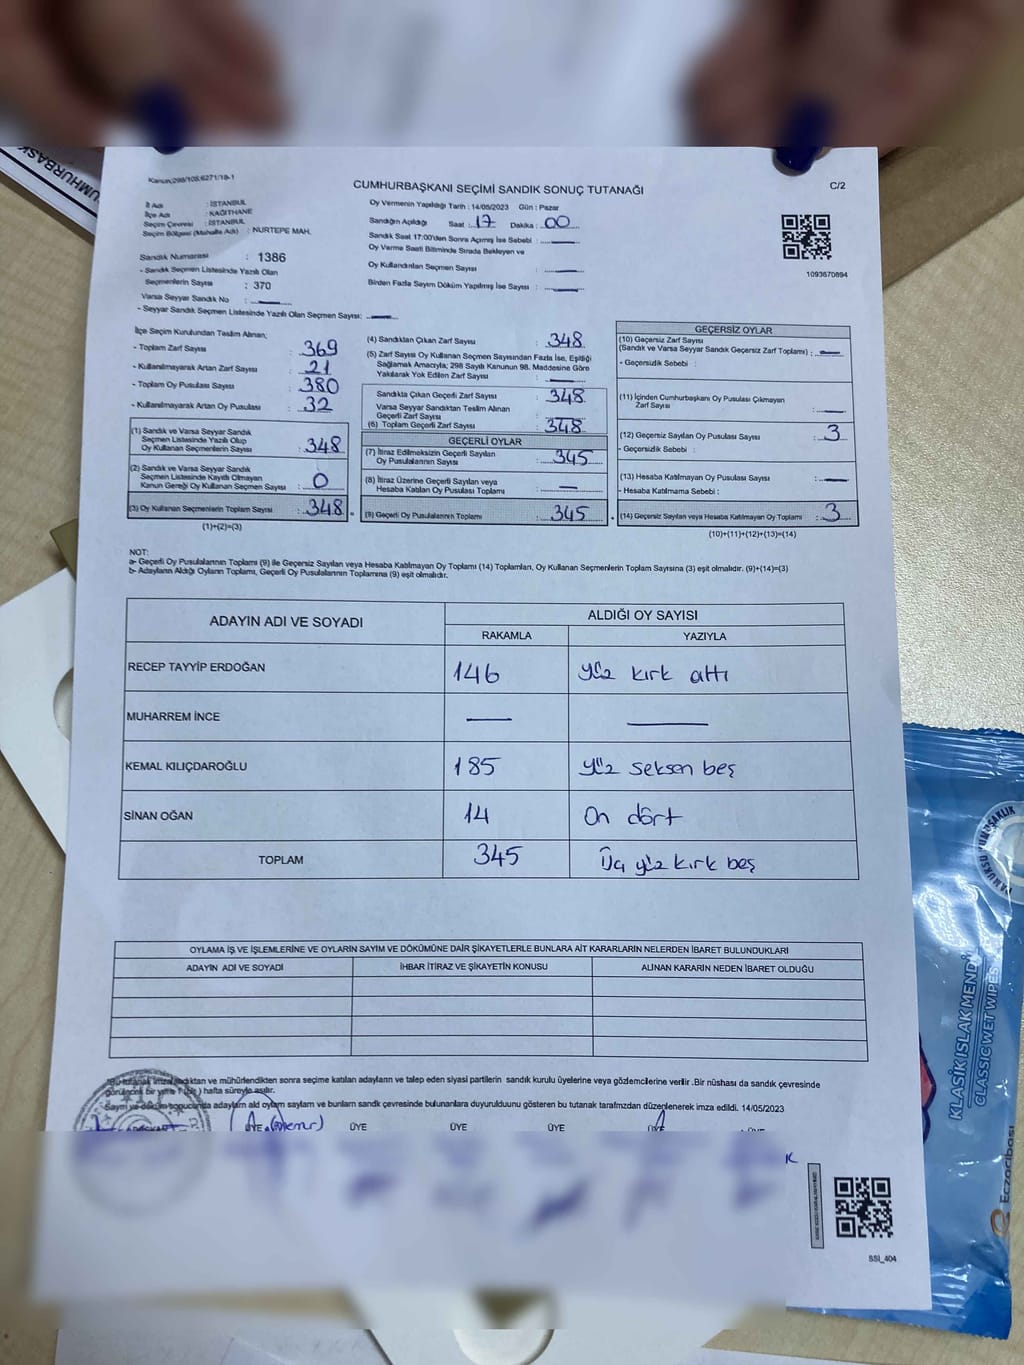 CUMHURBAŞK
Kanun:298/105:6271/19-1
CUMHURBAŞKANI SEÇİMİ SANDIK SONUÇ TUTANAĞI
C/2
İl Adı : İSTANBUL
İlçe Adı : KAĞITHANE
Seçim Çevresi : İSTANBUL
Seçim Bölgesi (Mahalle Adı) : NURTEPE MAH.
Sandık Numarası : 1386
- Sandık Seçmen Listesinde Yazılı Olan
Seçmenlerin Sayısı : 370
Varsa Seyyar Sandık No :
- Seyyar Sandık Seçmen Listesinde Yazılı Olan Seçmen Sayısı:
Oy Vermenin Yapıldığı Tarih : 14/05/2023 Gün : Pazar
Sandığın Açıldığı Saat : 17 Dakika : 00
Sandık Saat 17:00'den Sonra Açılmış İse Sebebi :
Oy Verme Saati Bitiminde Sırada Bekleyen ve
Oy Kullandırılan Seçmen Sayısı :
Birden Fazla Sayım Döküm Yapılmış İse Sayısı :
1093670894
İlçe Seçim Kurulundan Teslim Alınan;
- Toplam Zarf Sayısı : 369
- Kullanılmayarak Artan Zarf Sayısı : 21
- Toplam Oy Pusulası Sayısı : 380
- Kullanılmayarak Artan Oy Pusulası : 32
(1) Sandık ve Varsa Seyyar Sandık
Seçmen Listesinde Yazılı Olup
Oy Kullanan Seçmenlerin Sayısı : 348
(2) Sandık ve Varsa Seyyar Sandık
Seçmen Listesinde Kayıtlı Olmayan
Kanun Gereği Oy Kullanan Seçmen Sayısı : 0
(3) Oy Kullanan Seçmenlerin Toplam Sayısı : 348
(1)+(2)=(3)
(4) Sandıktan Çıkan Zarf Sayısı : 348
(5) Zarf Sayısı Oy Kullanan Seçmen Sayısından Fazla İse, Eşitliği
Sağlamak Amacıyla; 298 Sayılı Kanunun 98. Maddesine Göre
Yakılarak Yok Edilen Zarf Sayısı :
Sandıkta Çıkan Geçerli Zarf Sayısı : 348
Varsa Seyyar Sandıktan Teslim Alınan
Geçerli Zarf Sayısı :
(6) Toplam Geçerli Zarf Sayısı : 348
GEÇERLİ OYLAR
(7) İtiraz Edilmeksizin Geçerli Sayılan
Oy Pusulalarının Sayısı : 345
(8) İtiraz Üzerine Geçerli Sayılan veya
Hesaba Katılan Oy Pusulası Toplamı :
(9) Geçerli Oy Pusulalarının Toplamı : 345
GEÇERSİZ OYLAR
(10) Geçersiz Zarf Sayısı
(Sandık ve Varsa Seyyar Sandık Geçersiz Zarf Toplamı) :
- Geçersizlik Sebebi :
(11) İçinden Cumhurbaşkanı Oy Pusulası Çıkmayan
Zarf Sayısı :
(12) Geçersiz Sayılan Oy Pusulası Sayısı : 3
- Geçersizlik Sebebi :
(13) Hesaba Katılmayan Oy Pusulası Sayısı :
- Hesaba Katılmama Sebebi :
(14) Geçersiz Sayılan veya Hesaba Katılmayan Oy Toplamı : 3
(10)+(11)+(12)+(13)=(14)
NOT:
a- Geçerli Oy Pusulalarının Toplamı (9) ile Geçersiz Sayılan veya Hesaba Katılmayan Oy Toplamı (14) Toplamları, Oy Kullanan Seçmenlerin Toplam Sayısına (3) eşit olmalıdır. (9)+(14)=(3)
b- Adayların Aldığı Oyların Toplamı, Geçerli Oy Pusulalarının Toplamına (9) eşit olmalıdır.
ADAYIN ADI VE SOYADI
ALDIĞI OY SAYISI
RAKAMLA YAZIYLA
RECEP TAYYİP ERDOĞAN 146 yüz kırk altı
MUHARREM İNCE
KEMAL KILIÇDAROĞLU 185 yüz seksen beş
SİNAN OĞAN 14 On dört
TOPLAM 345 Üç yüz kırk beş
OYLAMA İŞ VE İŞLEMLERİNE VE OYLARIN SAYIM VE DÖKÜMÜNE DAİR ŞİKAYETLERLE BUNLARA AİT KARARLARIN NELERDEN İBARET BULUNDUKLARI
ADAYIN ADI VE SOYADI İHBAR İTİRAZ VE ŞİKAYETİN KONUSU ALINAN KARARIN NEDEN İBARET OLDUĞU
"Bu tutanak imzalandıktan ve mühürlendikten sonra seçime katılan adayların ve talep eden siyasi partilerin sandık kurulu üyelerine veya gözlemcilerine verilir .Bir nüshası da sandık çevresinde
görülecek bir yere 1 (bir ) hafta süreyle asılır.
Sayım ve döküm sonucunda adayların aldığı oyların sayıları ve bunların sandık çevresinde bulunanlara duyurulduğunu gösteren bu tutanak tarafımızdan düzenlenerek imza edildi. 14/05/2023
ÜYE ÜYE ÜYE ÜYE ÜYE
SSİ_404
PAMUKSU YUMUŞAKLIK
KLASİK ISLAK MENDİL
CLASSIC WET WIPES
Eczacıbaşı